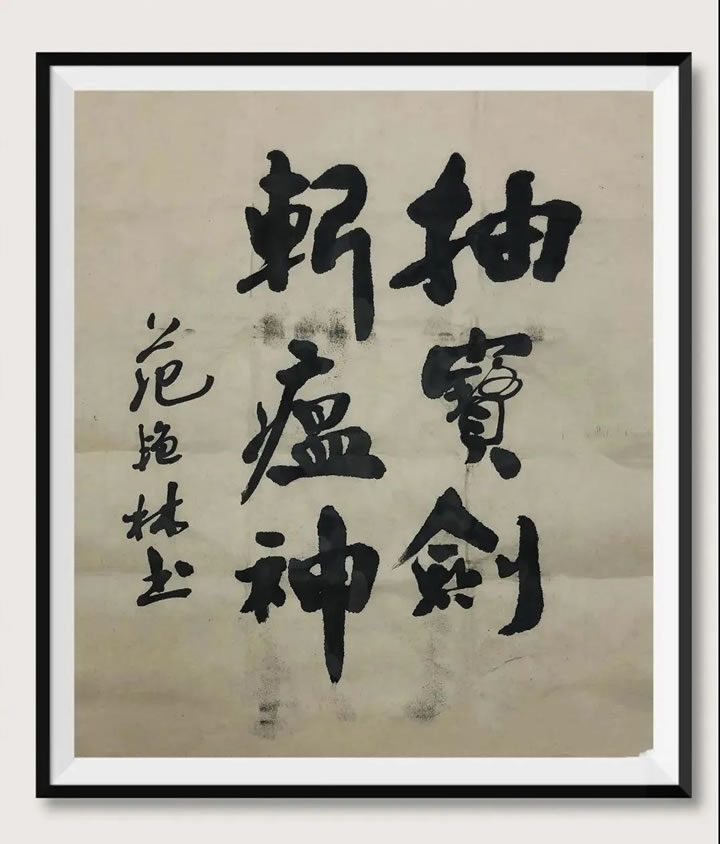 抽寶劍
斬瘟神
范艳林书